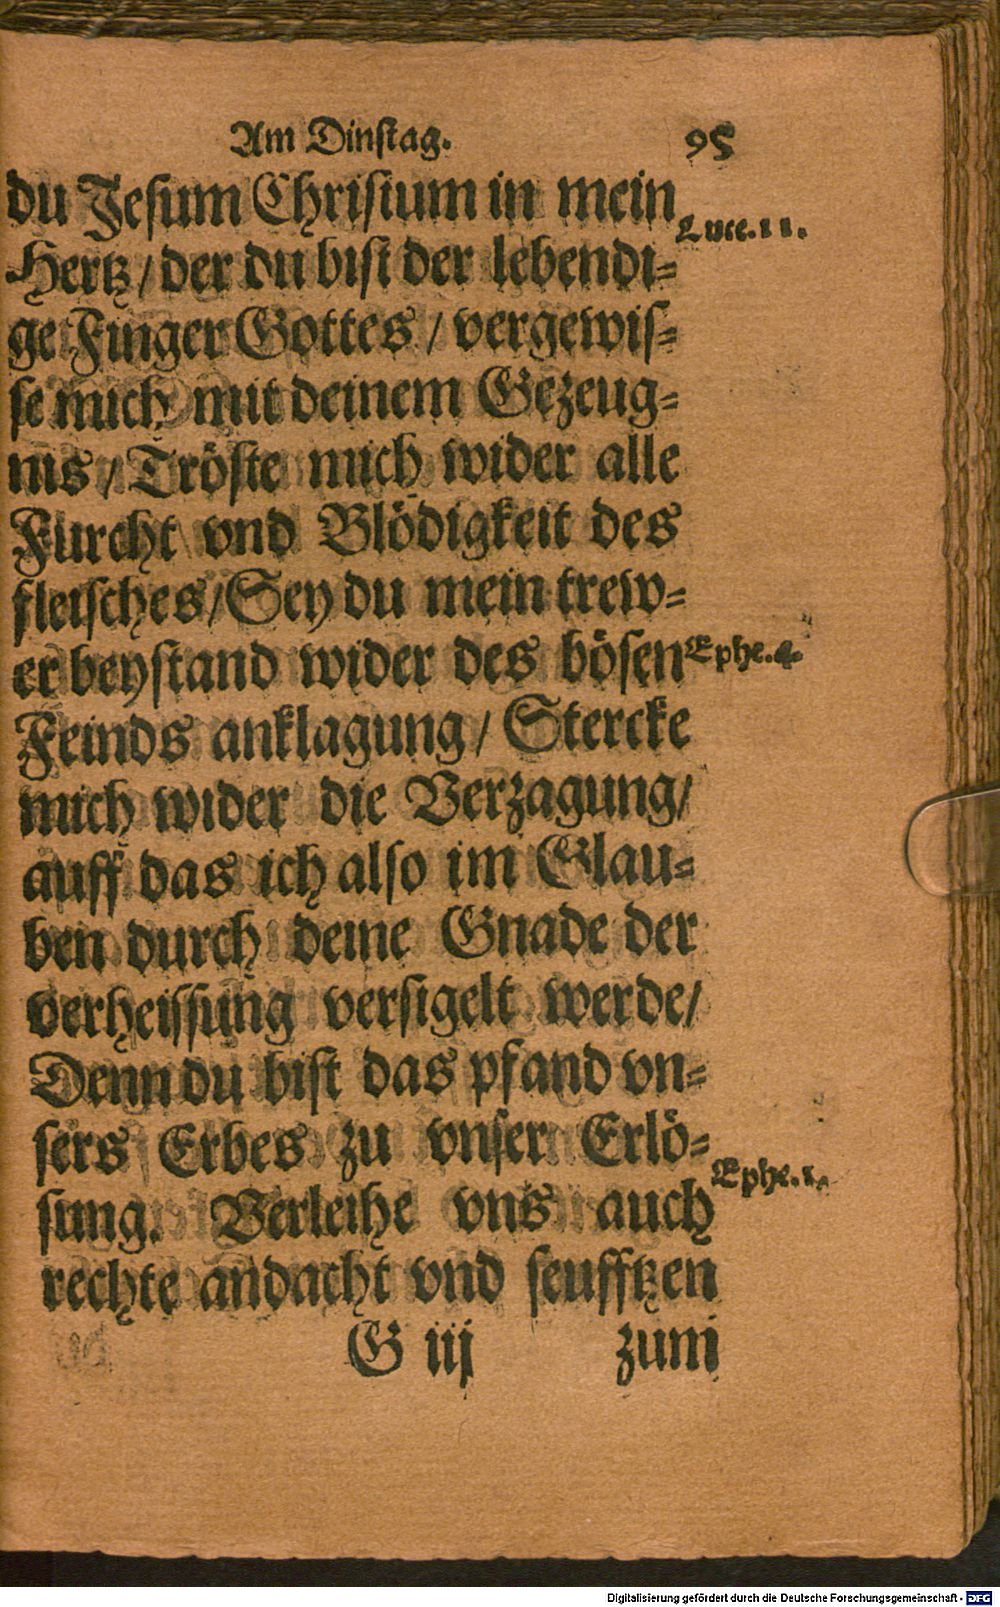 Am Dinstag. 95
du Jesum Christum in mein
Luce. 11.
Hertz / der du bist der lebendi=
ge Finger Gottes / vergewis=
se mich mit deinem Gezeug=
nis / Tröste mich wider alle
Furcht vnd Blödigkeit des
fleisches / Sey du mein trew=
er beystand wider des bösen
Ephe. 4.
Feinds anklagung / Stercke
mich wider die Verzagung /
auff das ich also im Glau=
ben durch deine Gnade der
verheissung versigelt werde /
Denn du bist das pfand vn=
sers Erbes zu vnser Erlö=
Ephe. 1.
sung. Verleihe vns auch
rechte andacht vnd seufftzen
G iij zum
Digitalisierung gefördert durch die Deutsche Forschungsgemeinschaft - DFG